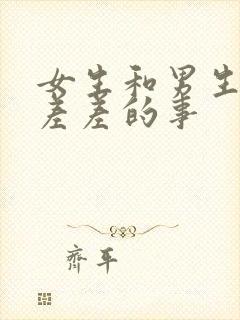 女生和男生
差差的事
齊平